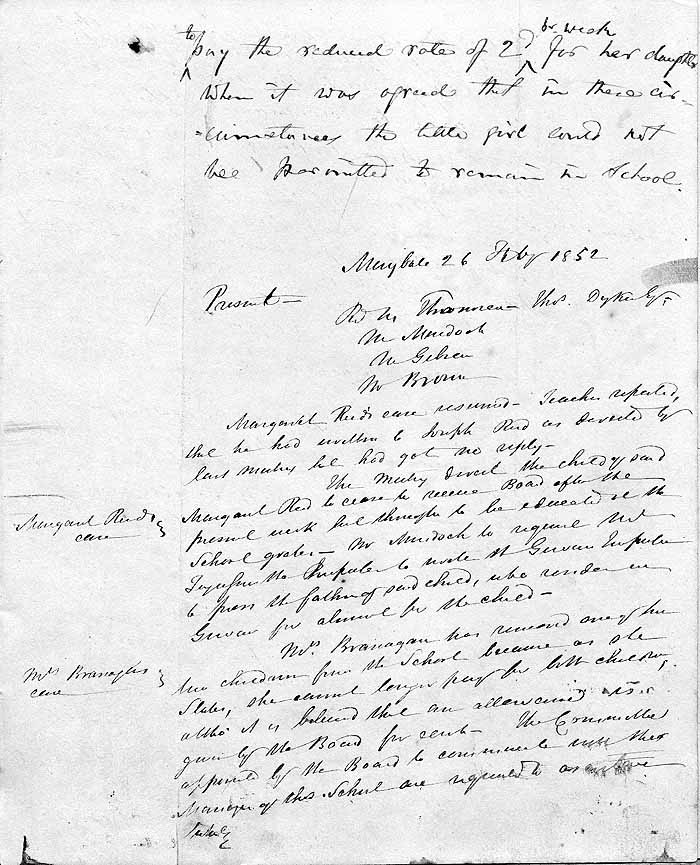 to pay the reduced rate of 2d pr week for her daughter
When it was agreed that in these cir-
=cumstances the little girl could not
bee permitted to remain in School.
Maybole 26 Feby 1852
Present—
Revd Mr Thomson— Thos. Dykes Esqr
Mr Murdoch
Mr Gibson
Mr Brown
Margaret Reid's case resumed— Teacher reported,
that he had written to Joseph Reid as directed by
last Meeting but had got no reply—
The Meeting direct the child of said
Margaret Reid's case
Margaret Reid to cease to receive Board after the
present week but through to be educated at the
School gratis— Mr Murdoch to request Mr
the Inspector to write the Girvan Inspector
to press the father of said child, who resides in
Girvan for aliment for the child—
Mrs Branagan's case
Mrs Branagan has removed one of her
two children from the School because as she
States, she cannot longer pay for both children,
altho it is believed that an allowance is
given by the Board for each— The Committee
appointed by the Board to communicate with the
Managers of this School are requested to